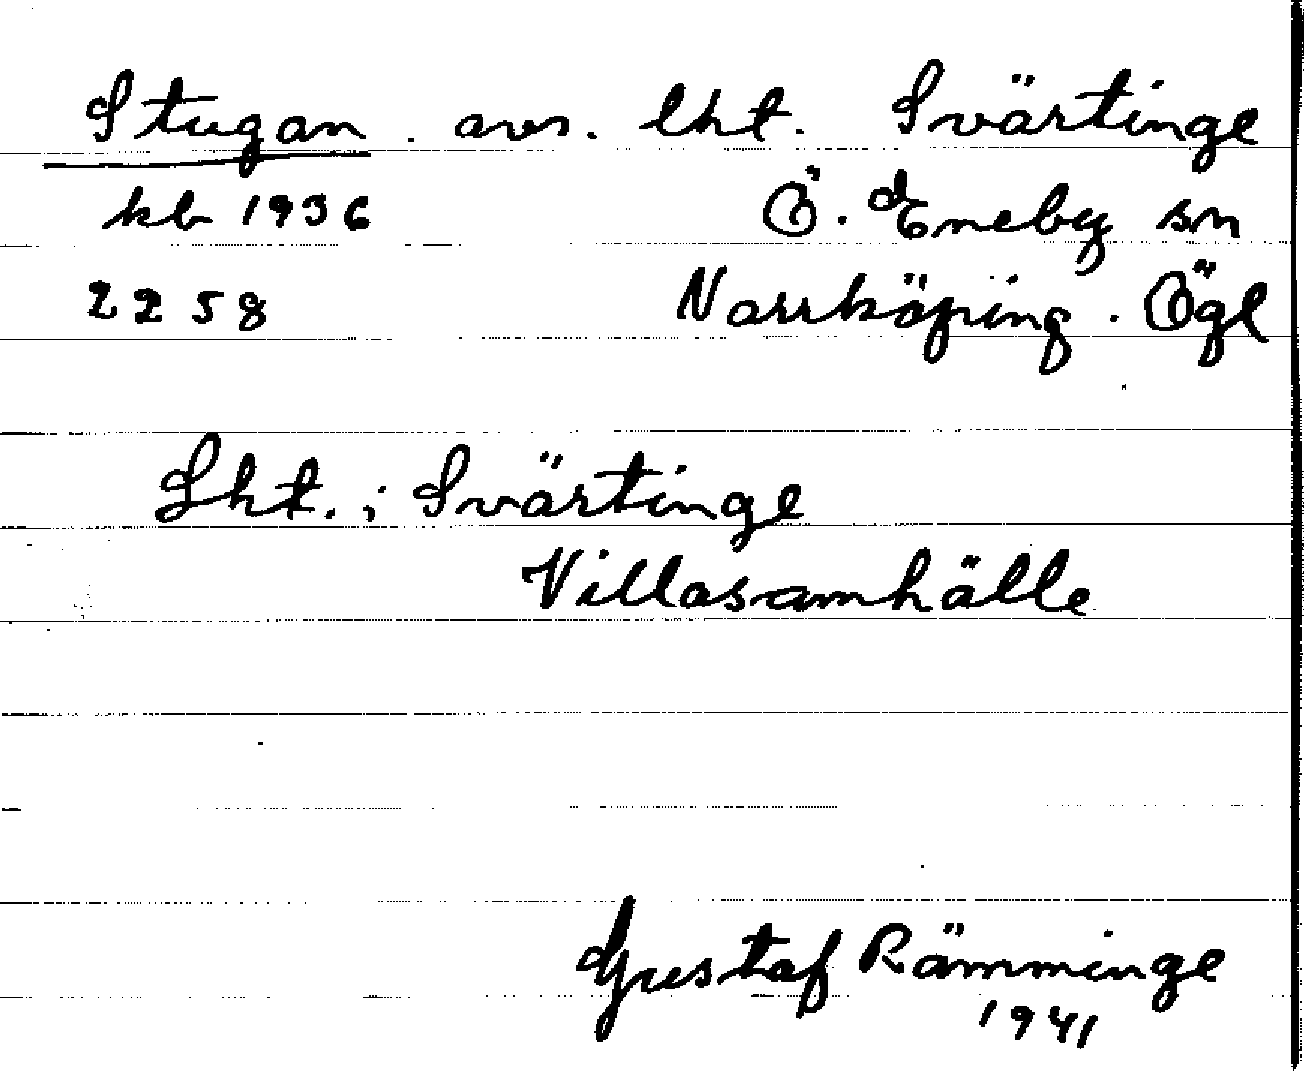 Stugan. avs. lht. Svärtinge
kb 1936 Ö. Eneby sn
2258 Norrköping. Ögl
Lht. i Svärtinge
Villasamhälle
Gustaf Rämminge
1941